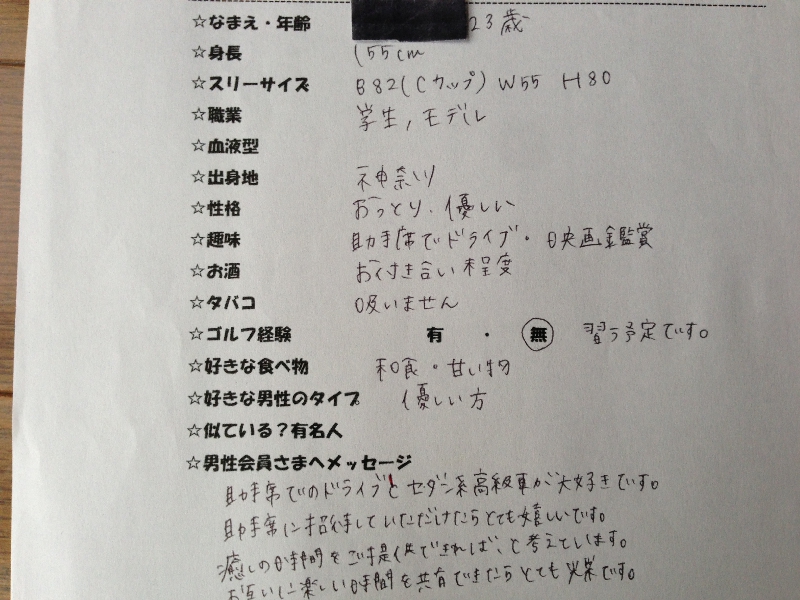 ☆なまえ・年齢 23歳
☆身長 155cm
☆スリーサイズ B82(Cカップ) W55 H80
☆職業 学生, モデル
☆血液型
☆出身地 神奈川
☆性格 おっとり・優しい
☆趣味 助手席でドライブ・映画鑑賞
☆お酒 お付き合い程度
☆タバコ 吸いません
☆ゴルフ経験 有 ・ 無 習う予定です。
☆好きな食べ物 和食・甘い物
☆好きな男性のタイプ 優しい方
☆似ている?有名人
☆男性会員さまへメッセージ
助手席でのドライブとセダン系高級車が大好きです。
助手席に招待していただけたらとても嬉しいです。
癒しの時間をご提供できれば、と考えています。
お互いに楽しい時間を共有できたらとても光栄です。